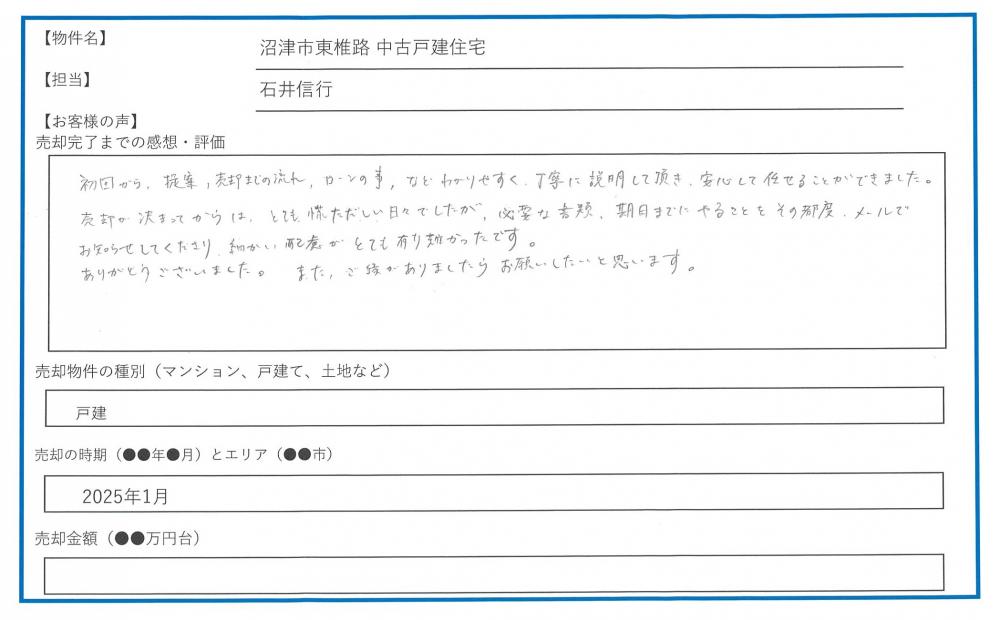 【物件名】
沼津市東椎路 中古戸建住宅
【担当】
石井信行
【お客様の声】
売却完了までの感想・評価
初回から、提案、売却までの流れ、ローンの事、などわかりやすく、丁寧に説明して頂き、安心して任せることができました。
売却が決まってからは、とても慌ただしい日々でしたが、必要な書類、期日までにやることをその都度、メールで
お知らせしてくださり、細かい配慮がとても有り難かったです。
ありがとうございました。 また、ご縁がありましたらお願いしたいと思います。
売却物件の種別（マンション、戸建て、土地など）
戸建
売却の時期（●●年●月）とエリア（●●市）
2025年1月
売却金額（●●万円台）